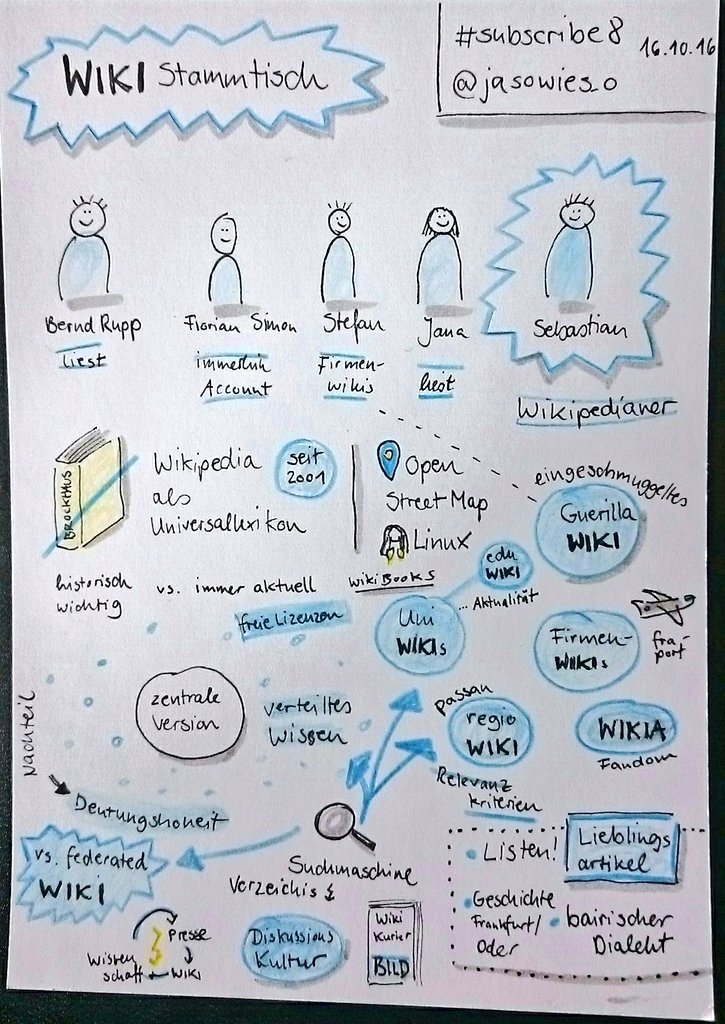 WIKI Stammtisch
#subscribe8 16.10.16
@jasowies_o
Bernd Rupp
liest
Florian Simon
immerhin
Account
Stefan
Firmen-
wikis
Jana
liest
Sebastian
Wikipedianer
BROCKHAUS
Wikipedia
als
Universallexikon
seit
2001
Open
Street Map
Linux
WikiBooks
eingeschmuggeltes
Guerilla
WIKI
historisch
wichtig
vs. immer aktuell
freie Lizenzen
edu
WIKI
... Aktualität
Uni
WIKIs
Firmen-
WIKIs
fra-
port
zentrale
Version
verteiltes
Wissen
passau
regio
WIKI
WIKIA
Fandom
Relevanz
kriterien
Nachteil
Deutungshoheit
vs. federated
WIKI
Suchmaschine
Verzeichis
Lieblings
artikel
Listen!
Geschichte
Frankfurt/
Oder
bairischer
Dialekt
Presse
WIKI
Wissen
schaft
Diskussions
Kultur
Wiki
Kurier
BILD